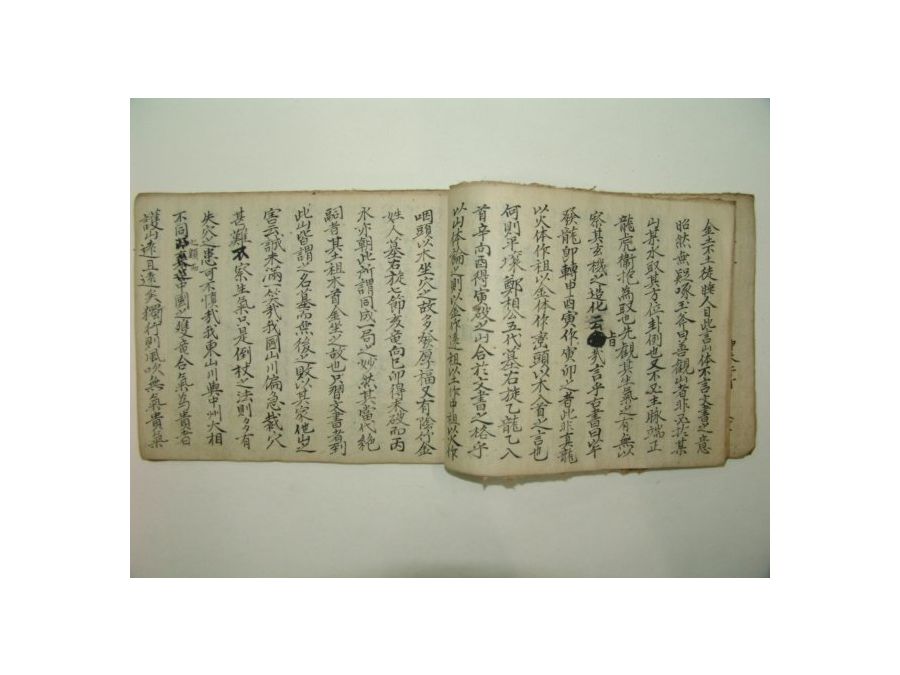 金土不土徒瞳人目此言山体不言文書之意
昭然無疑啄玉斧曰善觀山者非必於其
山某水取其方位卦例也又不必主脉端正
龍虎衛抱為取也先觀其生氣之有無以
察其玄機之造化云 旨哉言乎古書曰半
發龍卯轉申酉寅作寅卯之者此非真龍
以火体作祖以金体作巒頭以木入首之言也
何則平壤鄭相公五代墓右旋乙龍乙入
首辛向酉得寅破之山合於文書之格乎
以山体論之則以金作遠祖以土作中祖以火作
咽頭以木坐穴之故多發厚福又有陰竹金
姓人墓右旋七節亥竜向巳卯得未破而丙
水亦朝此所謂同成一局之妙然其當代絶
嗣者其土祖木首金坐之故也只習文書者到
此山皆謂之名墓而無後之敗以其家他山之
害云誠未滿一笑哉我國山川偏急裁穴
甚難不察生氣只是倒杖之法則多有
失穴之患可不愼哉我東山川與中州大相
不同 中國之獲竜合氣為貴者
護山遠且遠矣獨行則風吹無氣貴氣